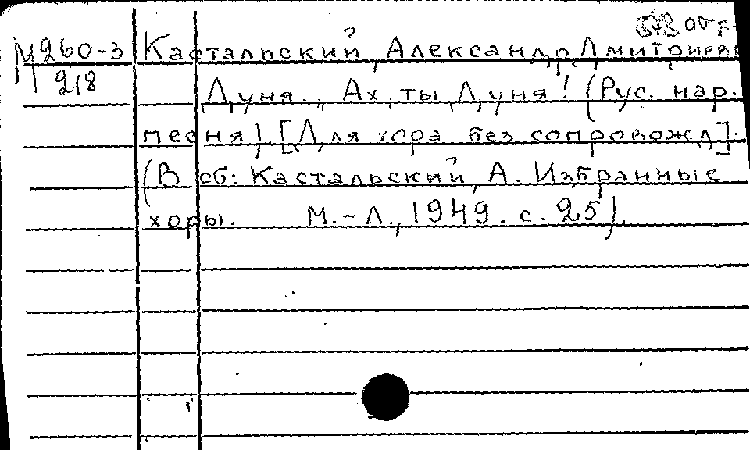 М260-3 Кастальский, Александр Дмитриев
218
Дуня. Ах, ты, Дуня! (Рус. нар.
песня). [Для хора без сопровожд].
(В сб: Кастальский, А. Избранные
хоры. М.-Л., 1949. с. 25).